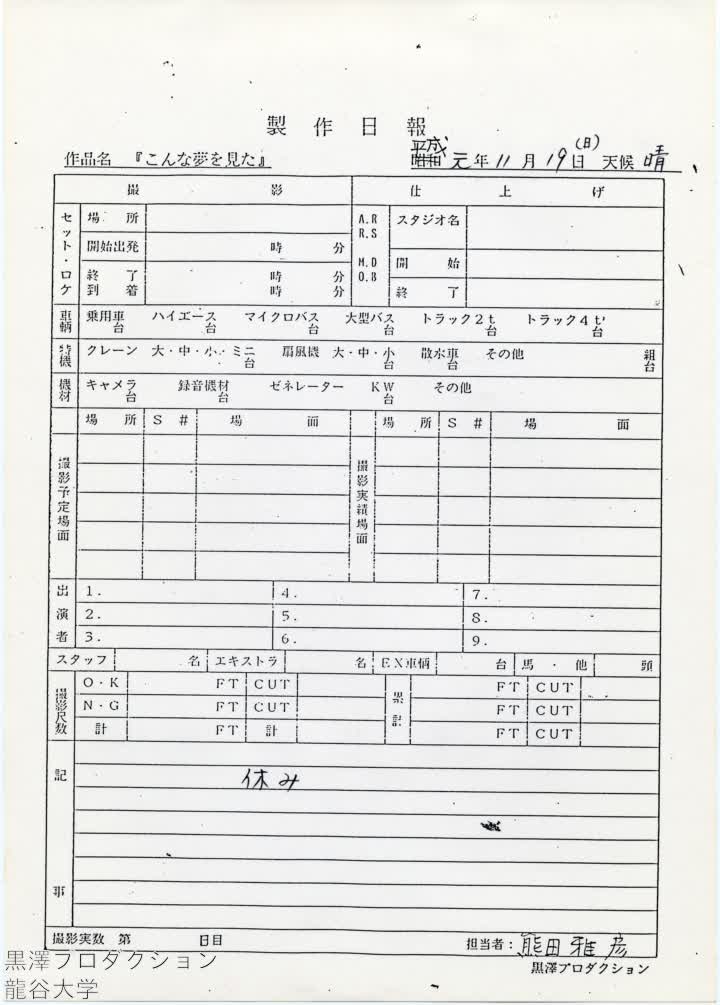 製作日報
作品名 『こんな夢を見た』 平成 昭和 元年 11月 19日 (日) 天候 晴
撮影 仕上げ
セット・ロケ 場所 A.R R.S スタジオ名
開始出発 時 分 M.D O.B 開始
終了 時 分
到着 時 分 終了
車輌 乗用車 台 ハイエース 台 マイクロバス 台 大型バス 台 トラック2t 台 トラック4t 台
特機 クレーン 大・中・小・ミニ 台 扇風機 大・中・小 台 散水車 台 その他 組 台
機材 キャメラ 台 録音機材 台 ゼネレーター KW 台 その他
場所 S # 場面 場所 S # 場面
撮影予定場面 撮影実績場面
出演者 1. 4. 7.
2. 5. 8.
3. 6. 9.
スタッフ 名 エキストラ 名 EX車輌 台 馬・他 頭
撮影尺数 O・K FT CUT 累計 FT CUT
N・G FT CUT FT CUT
計 FT 計 FT CUT
記事
休み
撮影実数 第 日目 担当者: 熊田雅彦
黒澤プロダクション
黒澤プロダクション
龍谷大学